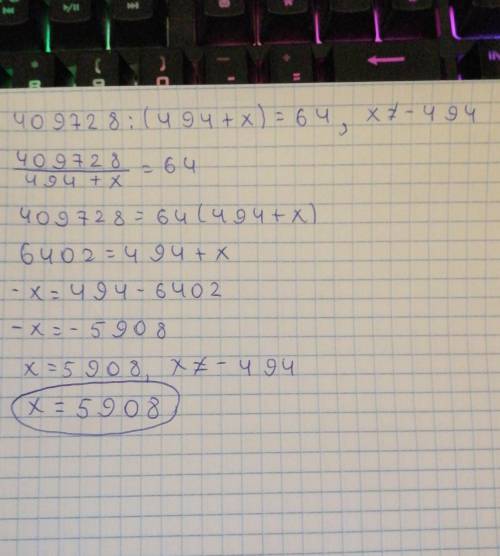 409728:(494+x)=64, x≠-494
409728/494+x = 64
409728=64(494+x)
6402=494+x
-x=494-6402
-x=-5908
x=5908, x≠-494
x=5908